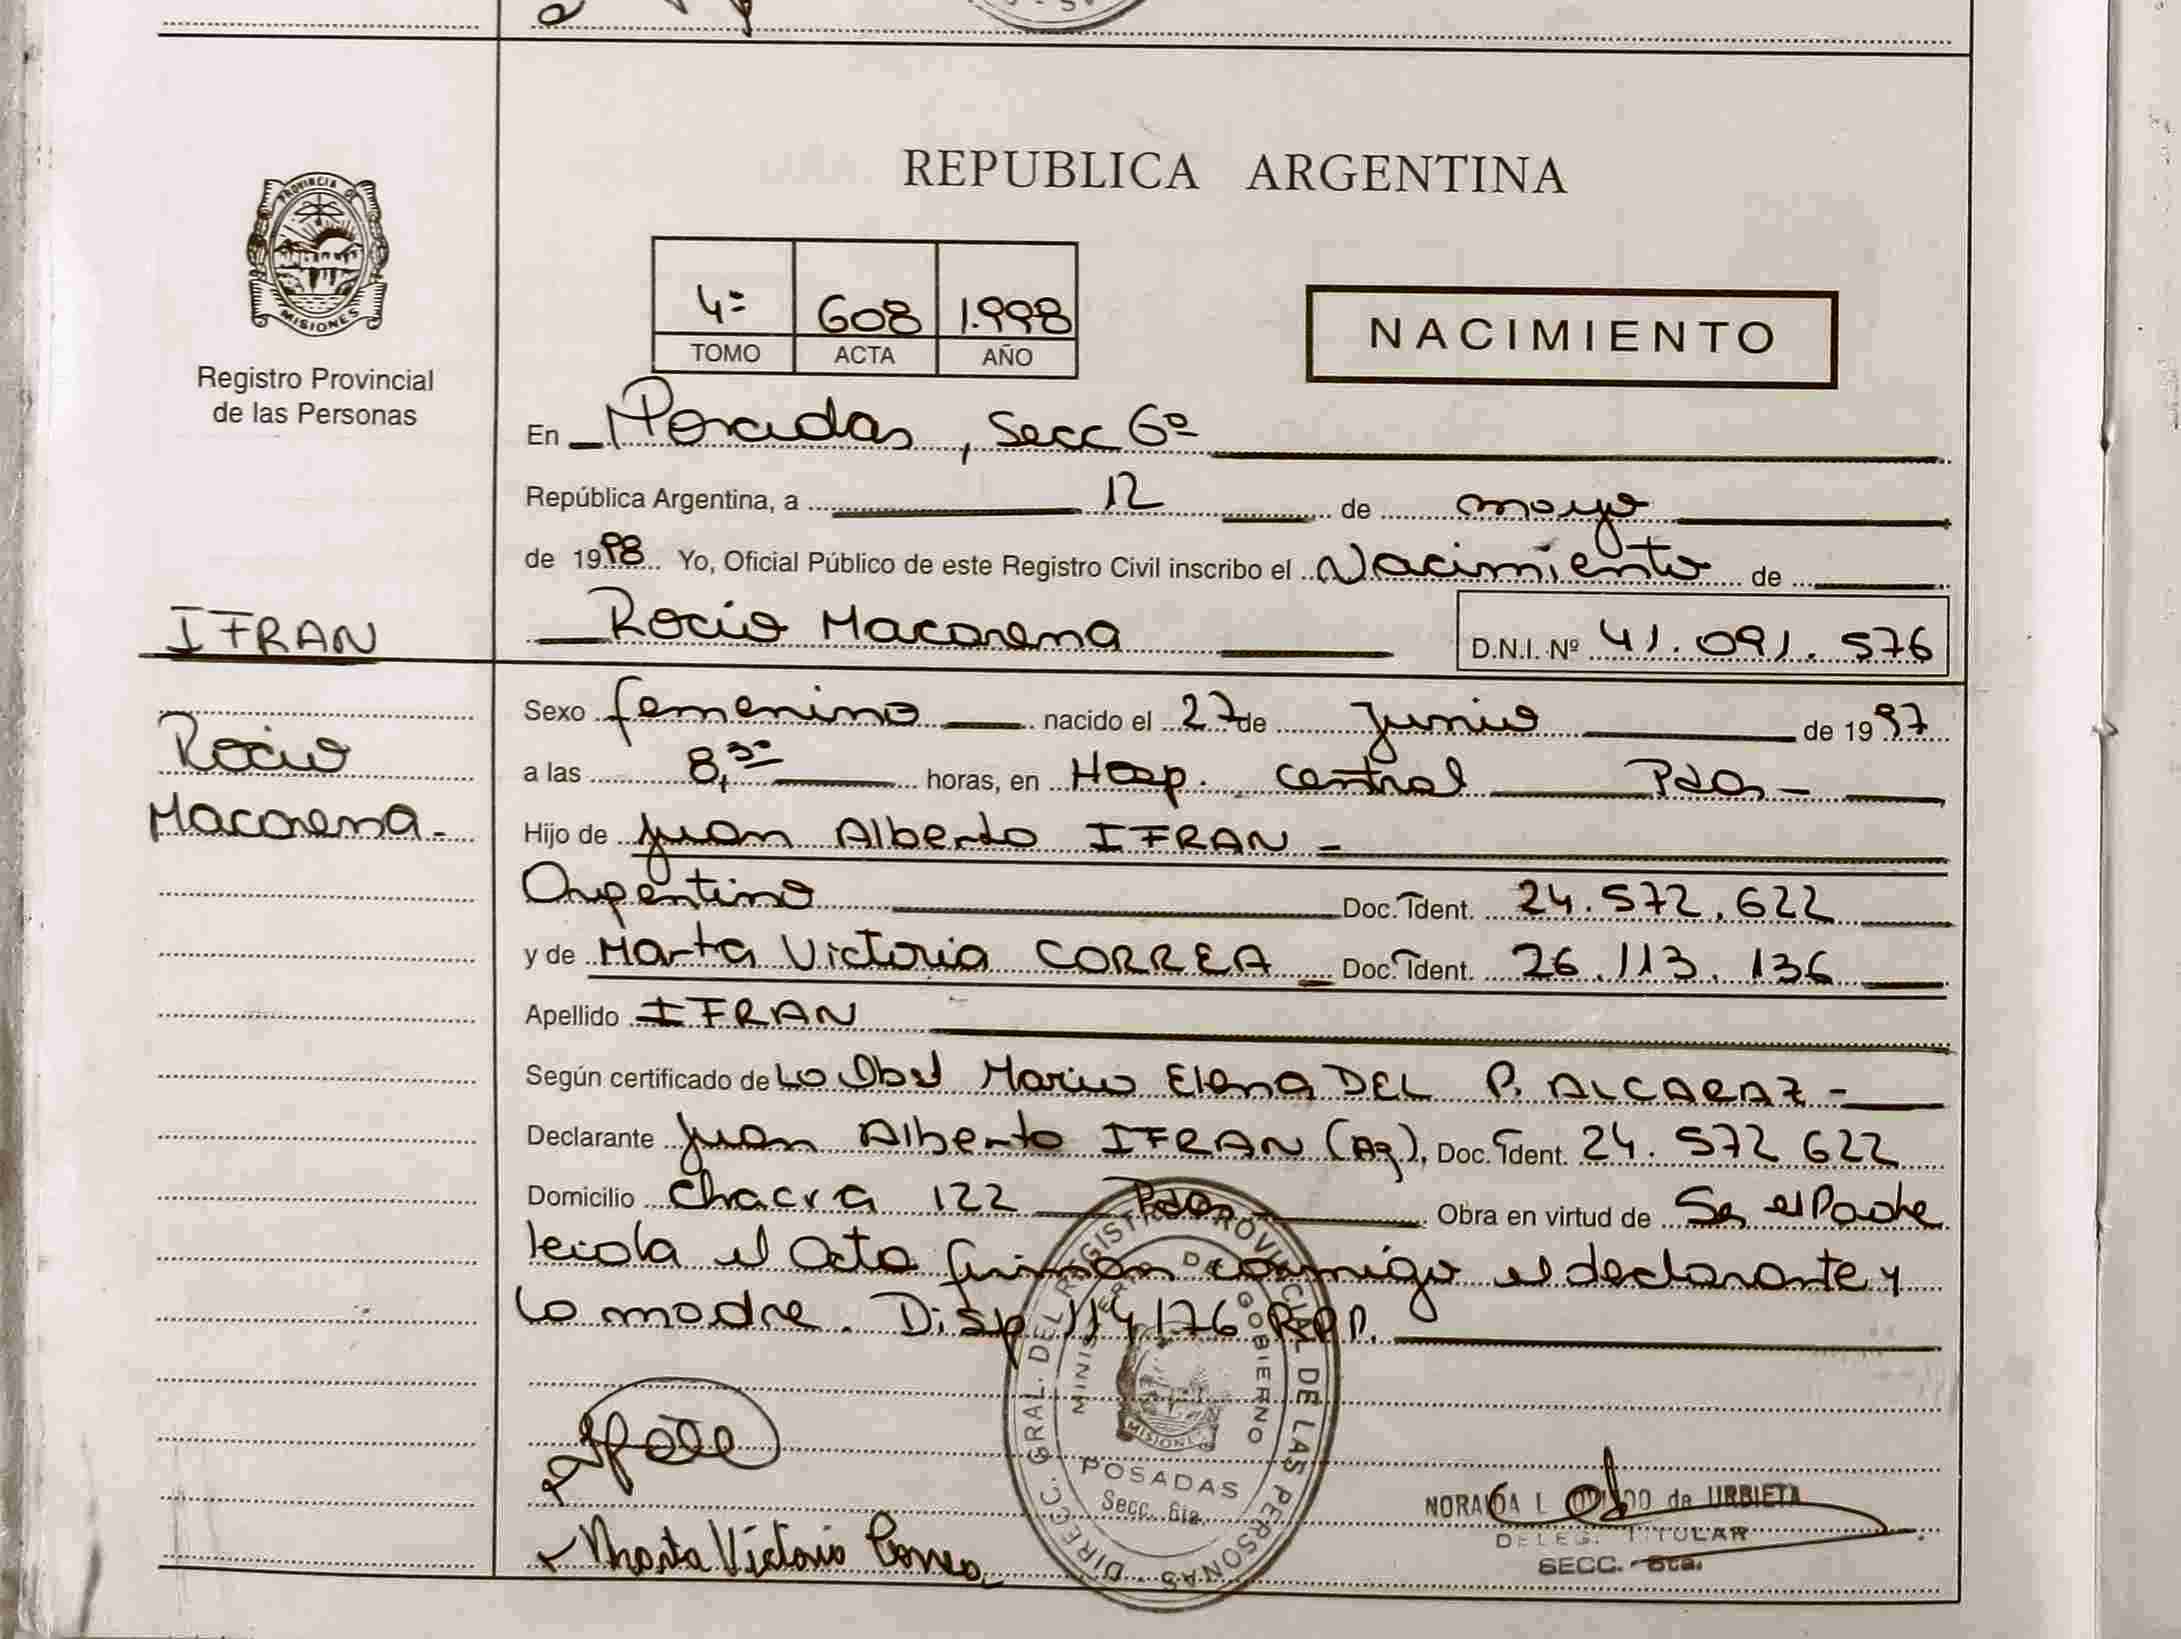 REPUBLICA ARGENTINA
PROVINCIA DE
MISIONES
Registro Provincial
de las Personas
4º 608 1.998
TOMO ACTA AÑO
NACIMIENTO
En Posadas, Secc 6º
República Argentina, a 12 de mayo
de 1998 Yo, Oficial Público de este Registro Civil inscribo el Nacimiento de
IFRAN
Rocio Macarena D.N.I. Nº 41.091.576
Rocio
Macarena.-
Sexo femenino nacido el 27 de Junio de 1997
a las 8,30 horas, en Hosp. Central Pdas-
Hijo de Juan Alberto IFRAN -
Argentino Doc. Ident. 24.572.622
y de Marta Victoria CORREA Doc. Ident. 26.113.136
Apellido IFRAN
Según certificado de La Obst Maria Elena DEL P. ALCARAZ -
Declarante Juan Alberto IFRAN (Ag), Doc. Ident. 24.572 622
Domicilio Chacra 122 Pdas- Obra en virtud de Ser el Padre
leida el Acta firman conmigo el declarante y
la madre. Disp 114/76 R.P.P.
DIRECC. GRAL. DEL REGISTRO PROVINCIAL DE LAS PERSONAS
MINISTERIO DE GOBIERNO
MISIONES
POSADAS
Secc. 6ta.
Marta Victoria Correa
de URBIETA
DELEG. TITULAR
SECC. 6ta.